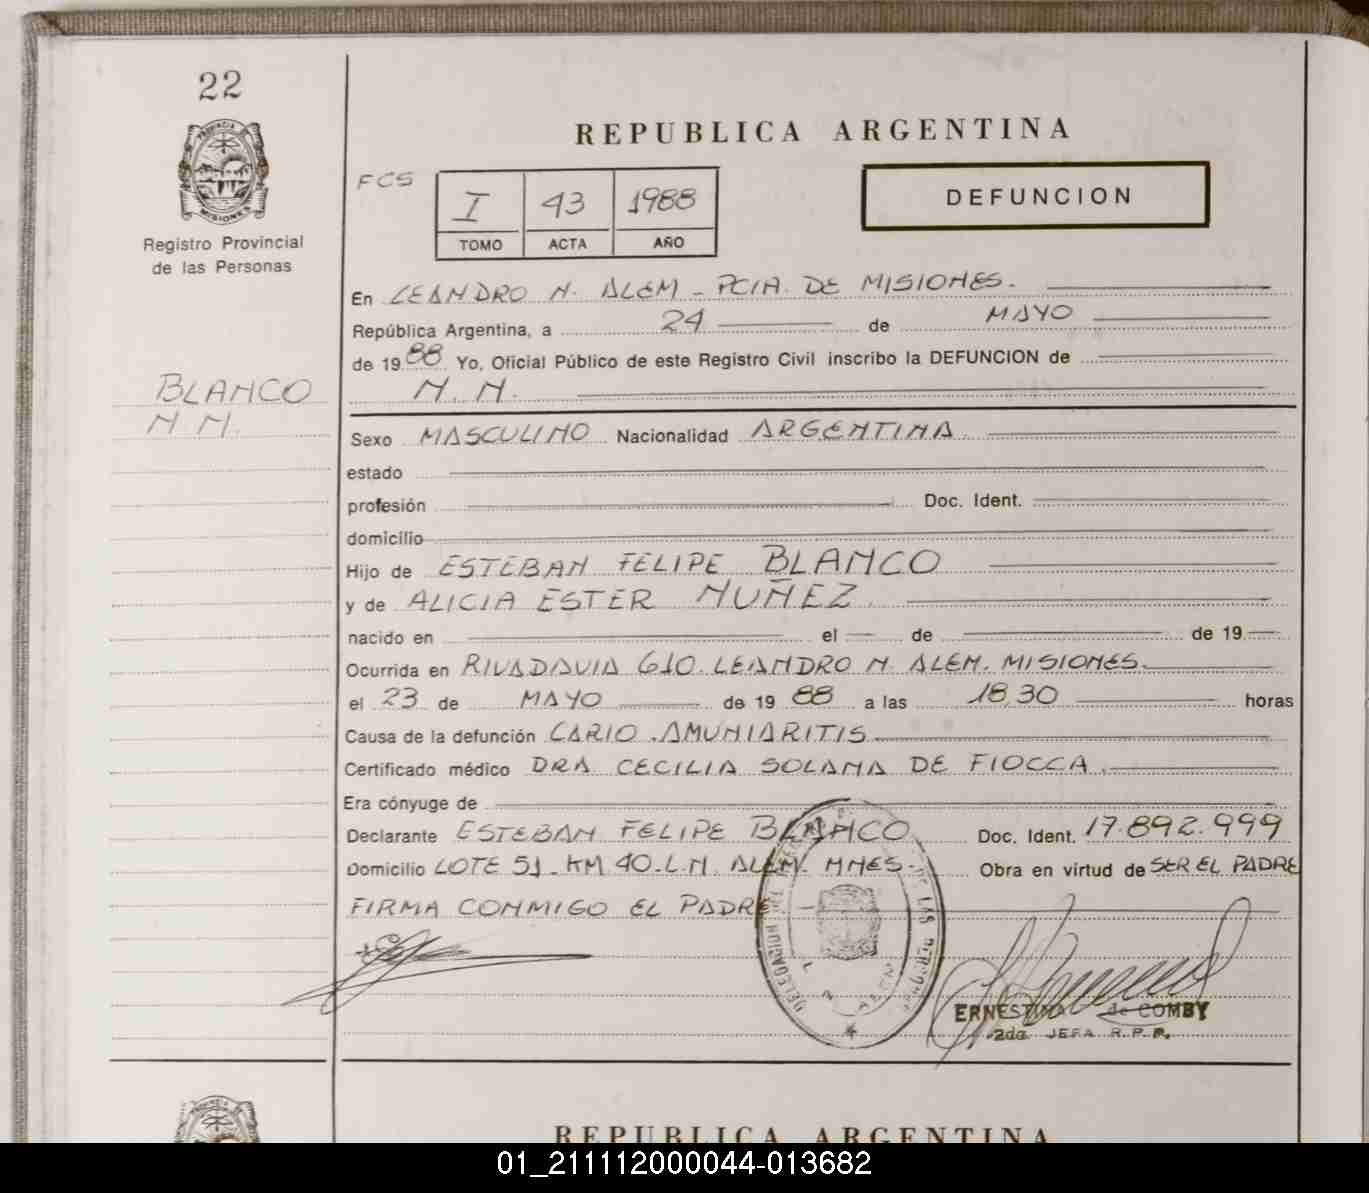 22
PROVINCIA DE
MISIONES
Registro Provincial
de las Personas
BLANCO
N N.
REPUBLICA ARGENTINA
FCS
I 43 1988
TOMO ACTA AÑO
DEFUNCION
En LEANDRO N. ALEM - PCIA. DE MISIONES.
República Argentina, a 24 de MAYO
de 1988 Yo, Oficial Público de este Registro Civil inscribo la DEFUNCION de
N. N.
Sexo MASCULINO Nacionalidad ARGENTINA
estado
profesión Doc. Ident.
domicilio
Hijo de ESTEBAN FELIPE BLANCO
y de ALICIA ESTER NUÑEZ.
nacido en el de de 19
Ocurrida en RIVADAVIA 610. LEANDRO N. ALEM. MISIONES.
el 23 de MAYO de 1988 a las 18,30 horas
Causa de la defunción CARIO. AMUNIARITIS
Certificado médico DRA CECILIA SOLANA DE FIOCCA.
Era cónyuge de
Declarante ESTEBAN FELIPE BLANCO Doc. Ident. 17.892.999
Domicilio LOTE 51 - KM 40. L.N. ALEM. MNES. Obra en virtud de SER EL PADRE
FIRMA CONMIGO EL PADRE -
ERNESTINA de COMBY
2da JEFA R.P.P.
REPUBLICA ARGENTINA
01_211112000044-013682